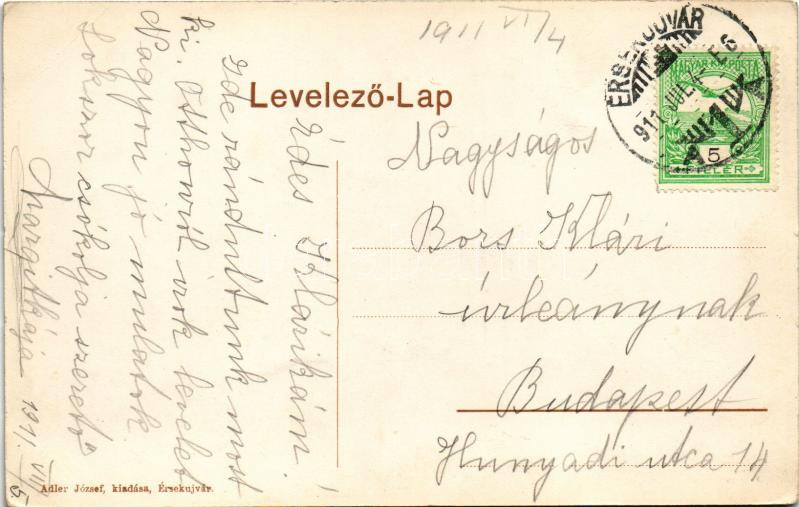 1911 VII/4
Levelező-Lap
ÉRSEKUJVÁR
911 JUL.
MAGYAR KIR. POSTA
5
FILLÉR
Nagyságos
Bors Klári
úrleánynak
Budapest
Hunyadi utca 14
Édes Klárikám!
Ide rándultunk most
ki. Otthonról irok levelet
Nagyon jó mulatok
Sokszor csókolja szerető
Margitkája 1911. VII/5
Adler József, kiadása, Érsekujvár.